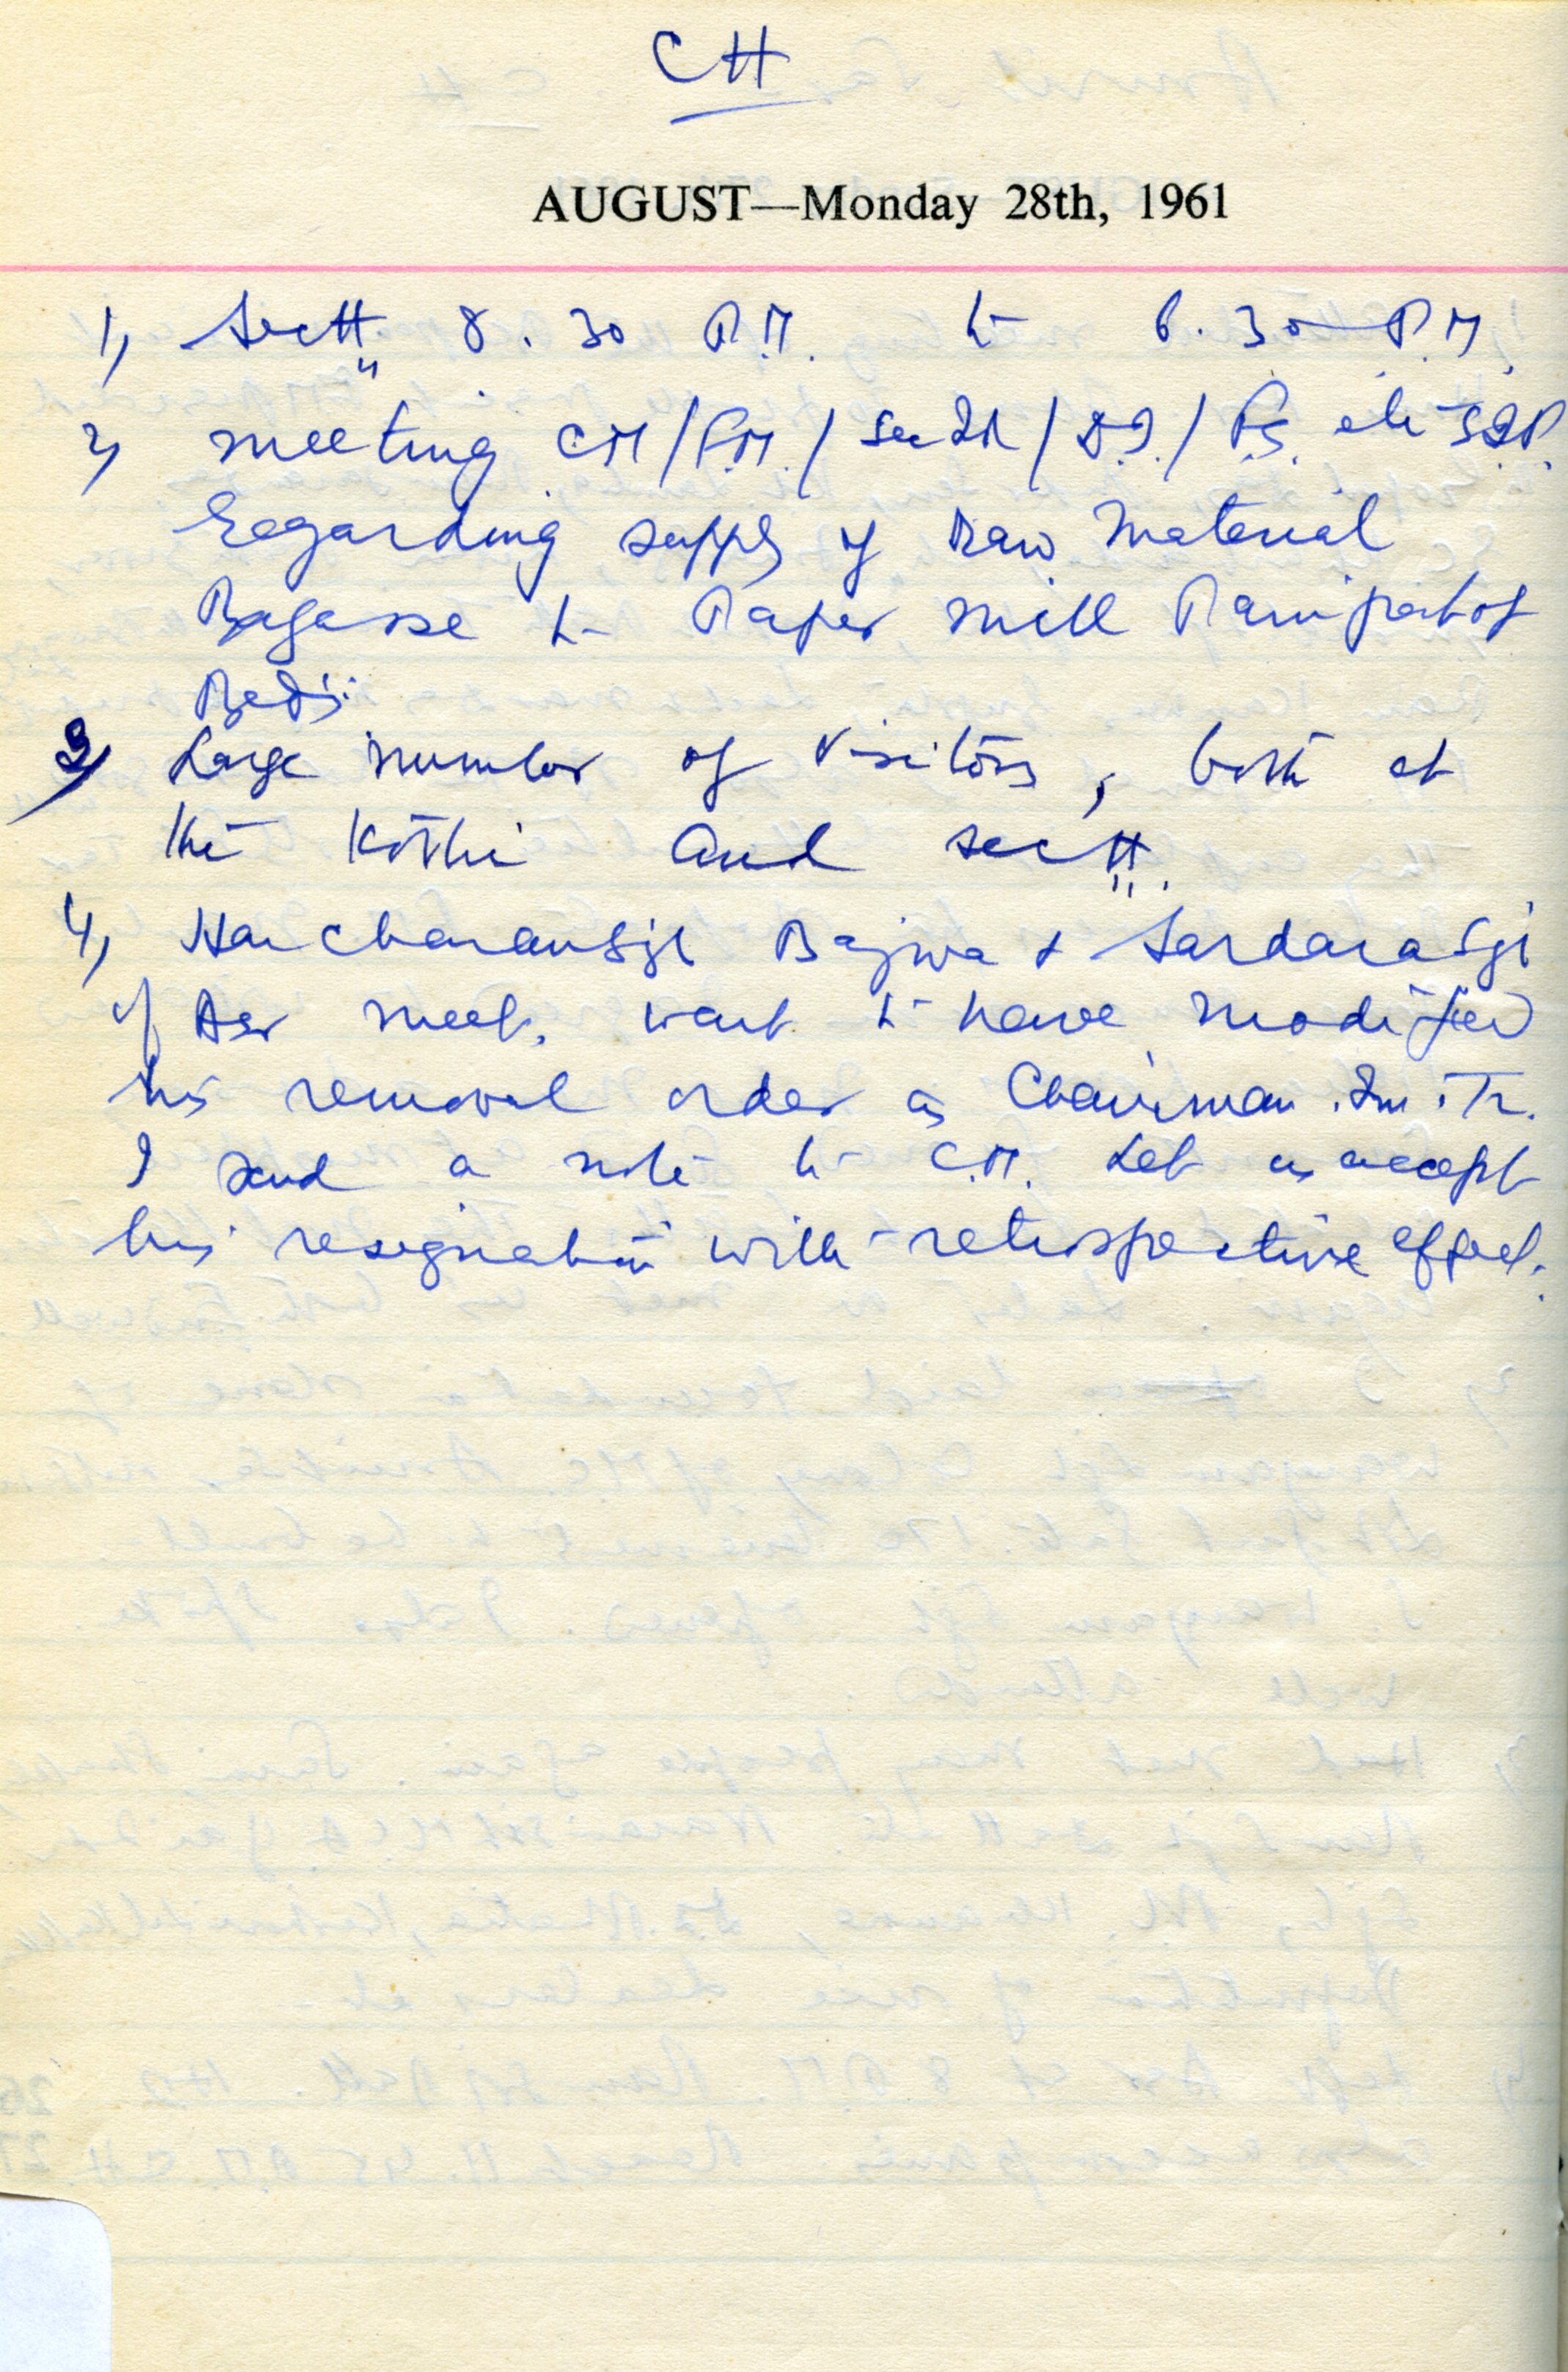 CH
AUGUST—Monday 28th, 1961
1) Sectt. 8.30 A.M. to 6.30 P.M.
2) meeting CM/F.M./Sec IR/D.I./P.S. etc
Regarding supply of Raw Material
Bagasse to Paper mill
Bedi.
3) Large number of visitors, both at
the Kothi and sectt.
4) Harcharan Sgh Bajwa & Sardara Sgh
of Asr meet. want to have modified
his removal order as Chairman Im. Tr.
I send a note to C.M. Let us accept
his resignation with retrospective effect.